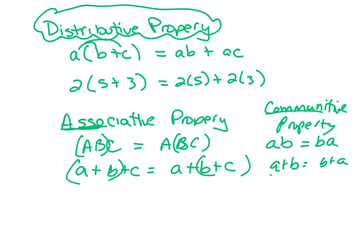 Distributive Propery
a(b+c) = ab + ac
2(5+3) = 2(5)+2(3)
Associative Propery
(AB)C = A(BC)
(a+b)+c = a+(b+c)
Communitive
Property
ab = ba
a+b = b+a